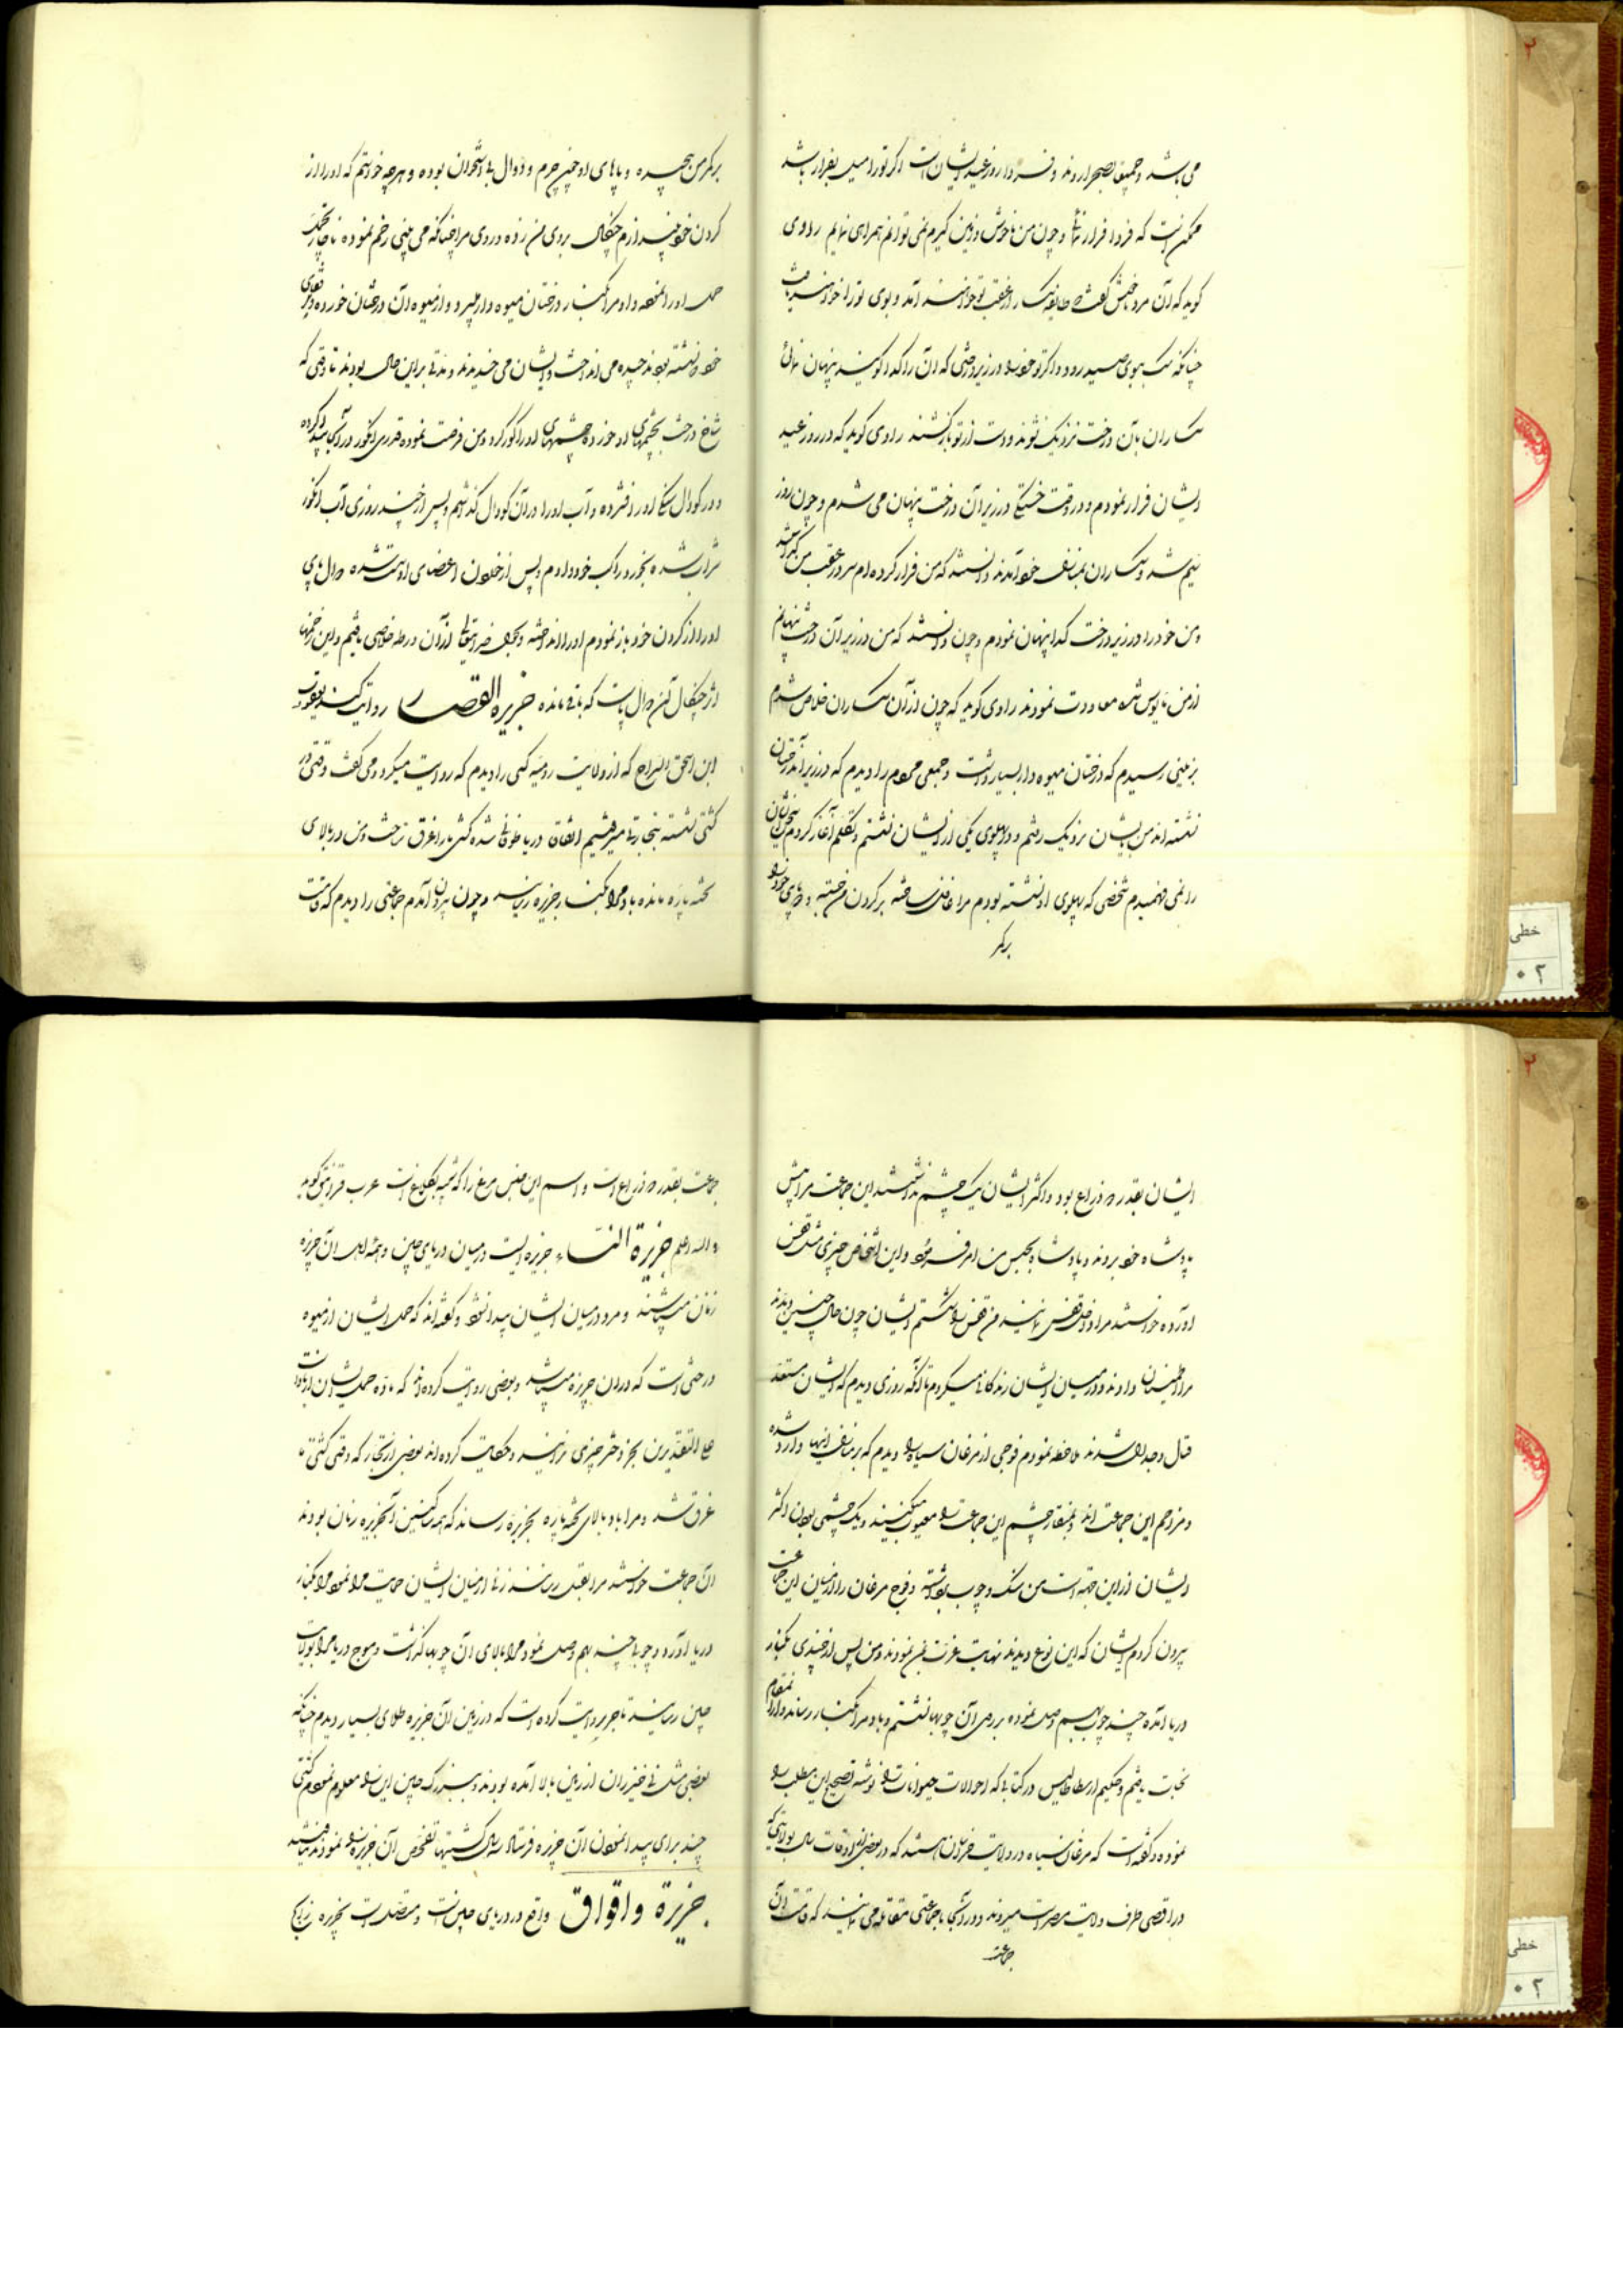 می باشد و جمیعا بصحرا روند و فردا روز عید ایشان است اگر تو را میل بفرار باشد
ممکن است که فردا فرار نمائی و چون من ناخوش و زمین گیرم نمی توانم همراهی نمایم راوی
گوید که آن مرد بمن گفت طایفه سگساران عقب تو خواهند آمد و بوی تو را خواهند یافت
چنانکه سگ ببوی صید رود و اگر تو خود را در زیر درختی که آن را کدا گویند پنهان نمائی
سگساران بآن درخت نزدیک نشوند و دست از تو باز کشند راوی گوید که در روز عید
ایشان فرار نمودم و در وقت خستگی در زیر آن درخت پنهان می شدم و چون روز
نیم شد و سگساران بمنازل خود آمدند و دانستند که من فرار کرده ام سر در عقب من گذاشتند
و من خود را در زیر درخت کدا پنهان نمودم و چون دانستند که من در زیر آن درخت پنهانم
از من مایوس شده معاودت نمودند راوی گوید که چون از آن سگساران خلاص شدم
بزمینی رسیدم که درختان میوه دار بسیار داشت و جمعی مردم را دیدم که در زیر آن درختان
نشسته اند من بایشان نزدیک رفتم و در پهلوی یکی از ایشان نشستم و تکلم آغاز کردم سخن ایشان
را نمی فهمیدم شخصی که پهلوی او نشسته بودم مرا غافل ساخته بر گردن من جسته و پای خود را
بر کمر
بر کمر من پیچیده و پاهای او چنین چرم و دوال بی استخوان بوده و هر چه خواستم که او را از
گردن خود بیندازم چنگال بروی من زده و روی مرا چنانکه می بینی زخم نموده ناچار
حمل او را نموده و او مرا بکنار درختان میوه دار میبرد و از میوه آن درختان خورده
خود نشسته بودند چیده می انداخت و ایشان می خندیدند و مدتی بر این حال بودند تا وقتی که
شاخ درخت بچشمهای او خورده چشمهای او را کور کرد و من فرصت نموده قدری انگور در آنجا پیدا کرده
و در گودال سنگی او را فشرده و آب او را در آن گودال گذاشتم و پس از چند روزی آب انگور
شراب شده بخورد راکب خود دادم و پس از خوردن اعضای او سست شده دوال پای
او را از گردن خود باز نمودم او را انداخته و بفضل خداوند تعالی از آن ورطه خلاصی یافتم و این زخمها
اثر چنگال آن دوال پا است که باقی مانده جزیره القصار روایت کند یعقوب
ابن اسحق السراج که از ولایت رومیه کسی را دیدم که روایت میکرد و می گفت وقتی در
کشتی نشسته بتجارت میرفتیم اتفاقا دریا طوفانی شده کشتی ما را غرق ساخت و من در بالای
تخته پاره مانده باد مرا بکنار جزیره رسانید و چون بیرون آمدم جماعتی را دیدم که قامت
ایشان بقدر ذراع بود و اکثر ایشان یک چشم نداشتند این جماعت مرا پیش
پادشاه خود بردند و پادشاه بحبس من امر فرمود و این اشخاص چیزی مثل قفس
آورده خواستند مرا داخل قفس نمایند من قفس را شکستم ایشان چون حال چنین دیدند
مرا اطمینان دادند و در میان ایشان زندگانی میکردم تا آنکه روزی دیدم که ایشان مستعد
قتال و جدال شدند ملاحظه نمودم فوجی از مرغان سیاه را دیدم که بر منازل اینها وارد شده
و مزاحم این جماعت اند و بمنقار چشم این جماعت را معیوب میکنند و یک چشمی بودن اکثر
ایشان از این جهت است من سنگ و چوب برداشته و فوج مرغان را از میان این جماعت
بیرون کردم ایشان که این نوع دیدند نهایت عزت بمن نمودند و من پس از چندی بکنار
دریا آمده چند چوب بهم وصل نموده بر روی آن چوبها نشستم و باد مرا بکنار رسانده و از آن مقام
نجات یافتم و حکیم ارسطاطالیس در کتابی که احوالات حیوانات را نوشته تصحیح این مطلب را
نموده و گفته است که مرغان سیاه در ولایت خراسان هستند که در بعضی از اوقات سال بولایتی که
در اقصی طرف ولایت مصر است میروند و در آنجا با جماعتی مقاتله می نمایند که قامت آن
جماعت
جماعت بقدر ذراع است و اسم این جنس مرغ را که شبیه بکلنگ است عرب غرنیق گوید
و الله اعلم جزیرة النساء جزیره ایست در میان دریای چین و همه اهل آن جزیره
زنان میباشند و مرد در میان ایشان پیدا نشود و گفته اند که حمل ایشان از میوه
درختی است که در آن جزیره میباشد و بعضی روایت کرده اند که ماده حمل ایشان از باد است
علی التقدیرین بجز دختر چیزی نزایند و حکایت کرده اند بعضی از تجار که وقتی کشتی ما
غرق شد و مرا باد بالای تخته پاره بجزیره رساند که همه ساکنین آن جزیره زنان بودند
آن جماعت خواستند مرا بقتل رسانند زنی از میان ایشان حمایت مرا نمود و مرا بکنار
دریا آورد و چوبی چند بهم وصل نمود مرا بالای آن چوبها گذاشت و موج دریا مرا بولایت
چین رسانید تاجر روایت کرده است که در زمین آن جزیره طلای بسیار دیدم چنانکه
بعضی مثل نی خیزران از زمین بالا آمده بودند و ببزرگ چین این را معلوم نمودم کشتی
چند برای پیدا نمودن آن جزیره فرستاد سال گشتها تفحص آن جزیره را نمودند نیافتند
جزیرة واقواق واقع در دریای چین است و متصل است بجزیره زنج
خطی
۲
۰۲